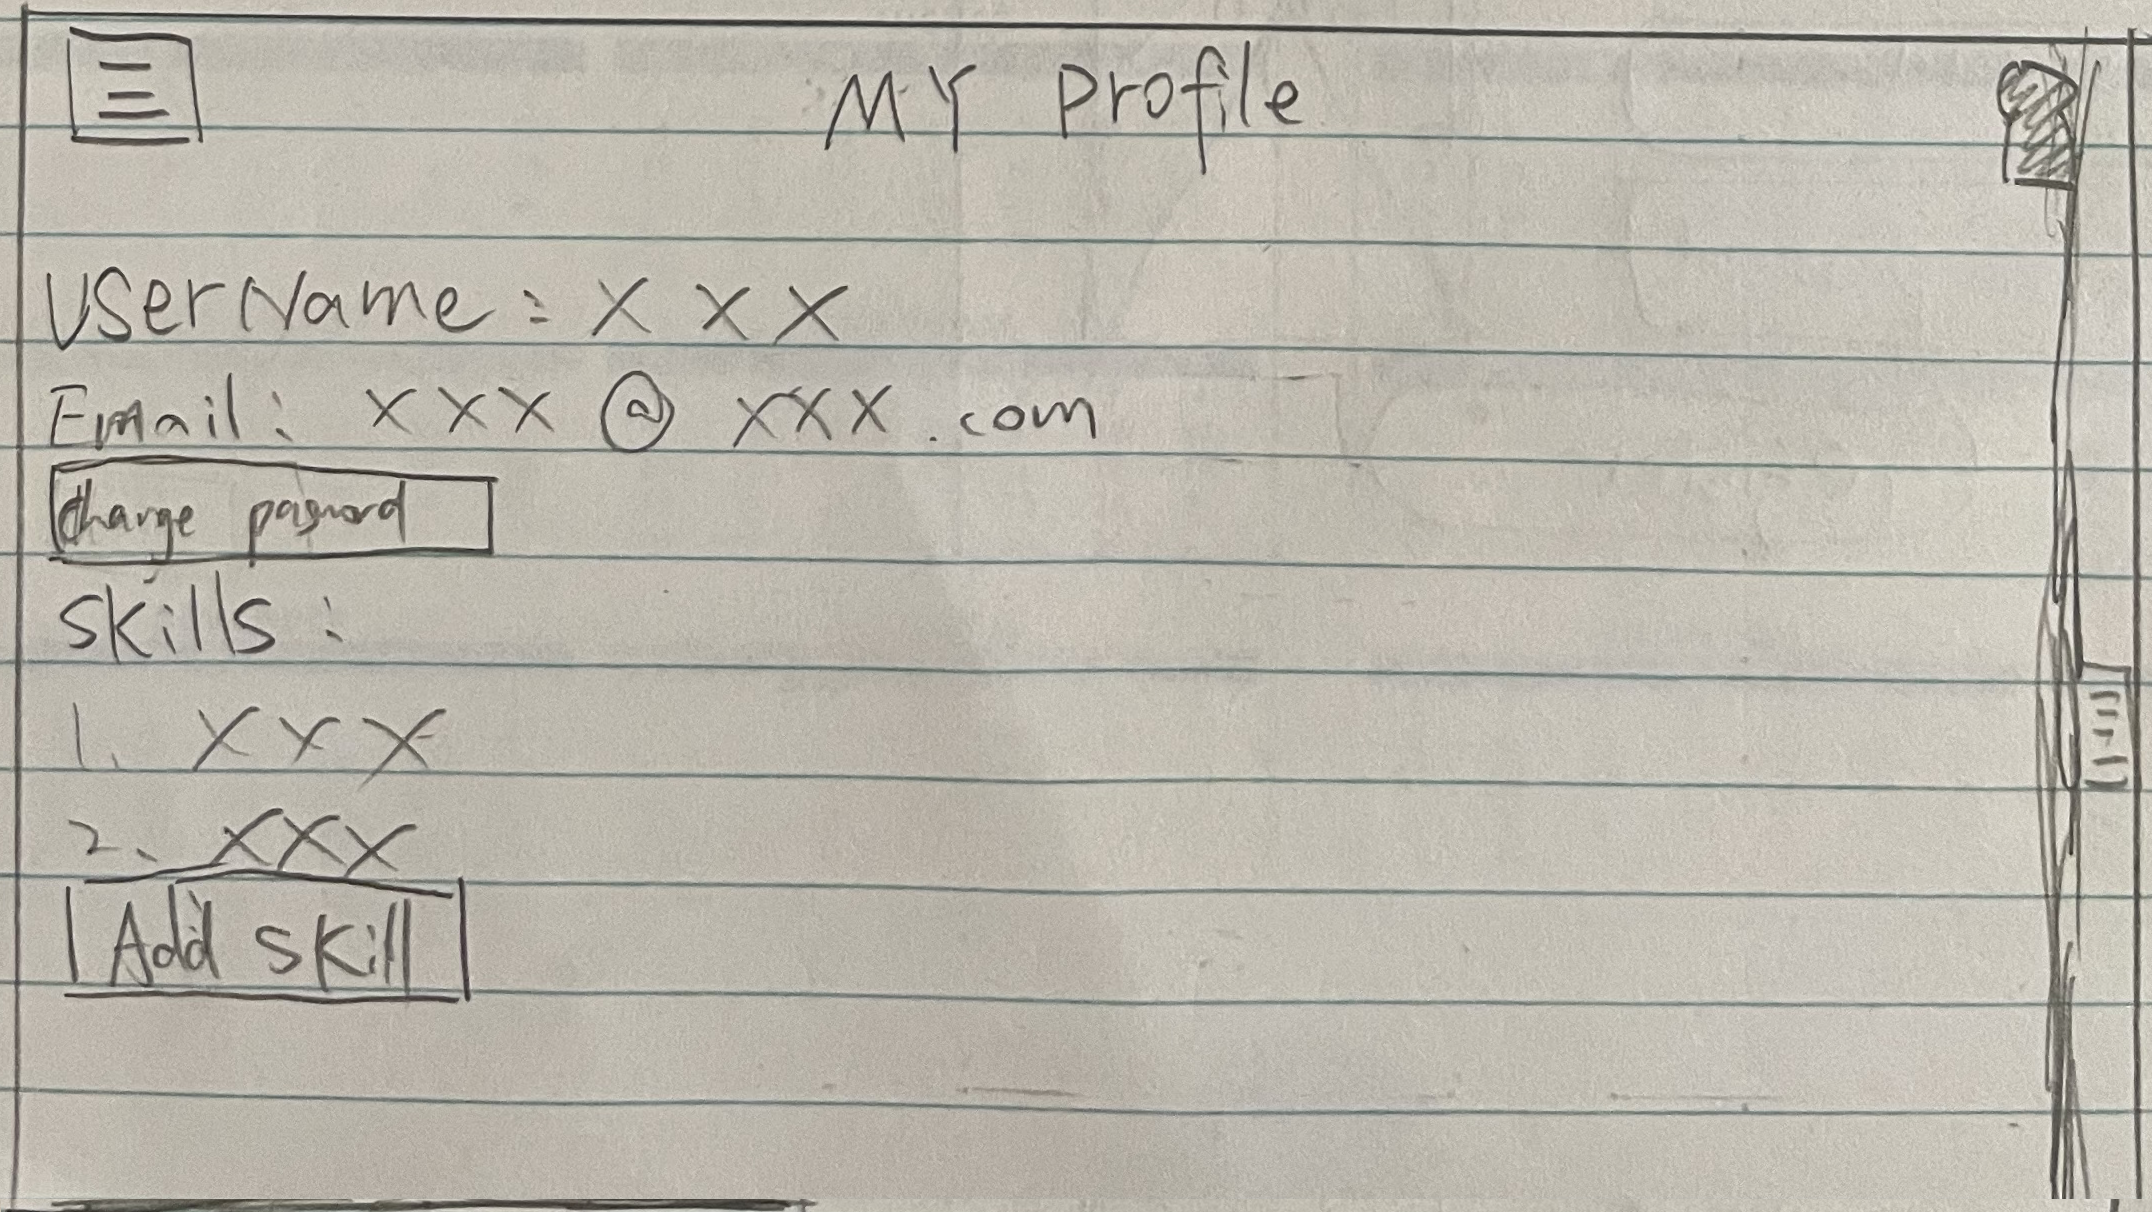 MY Profile
UserName: X X X
Email: XXX @ XXX .com
Change password
Skills:
1. XXX
2. XXX
Add skill